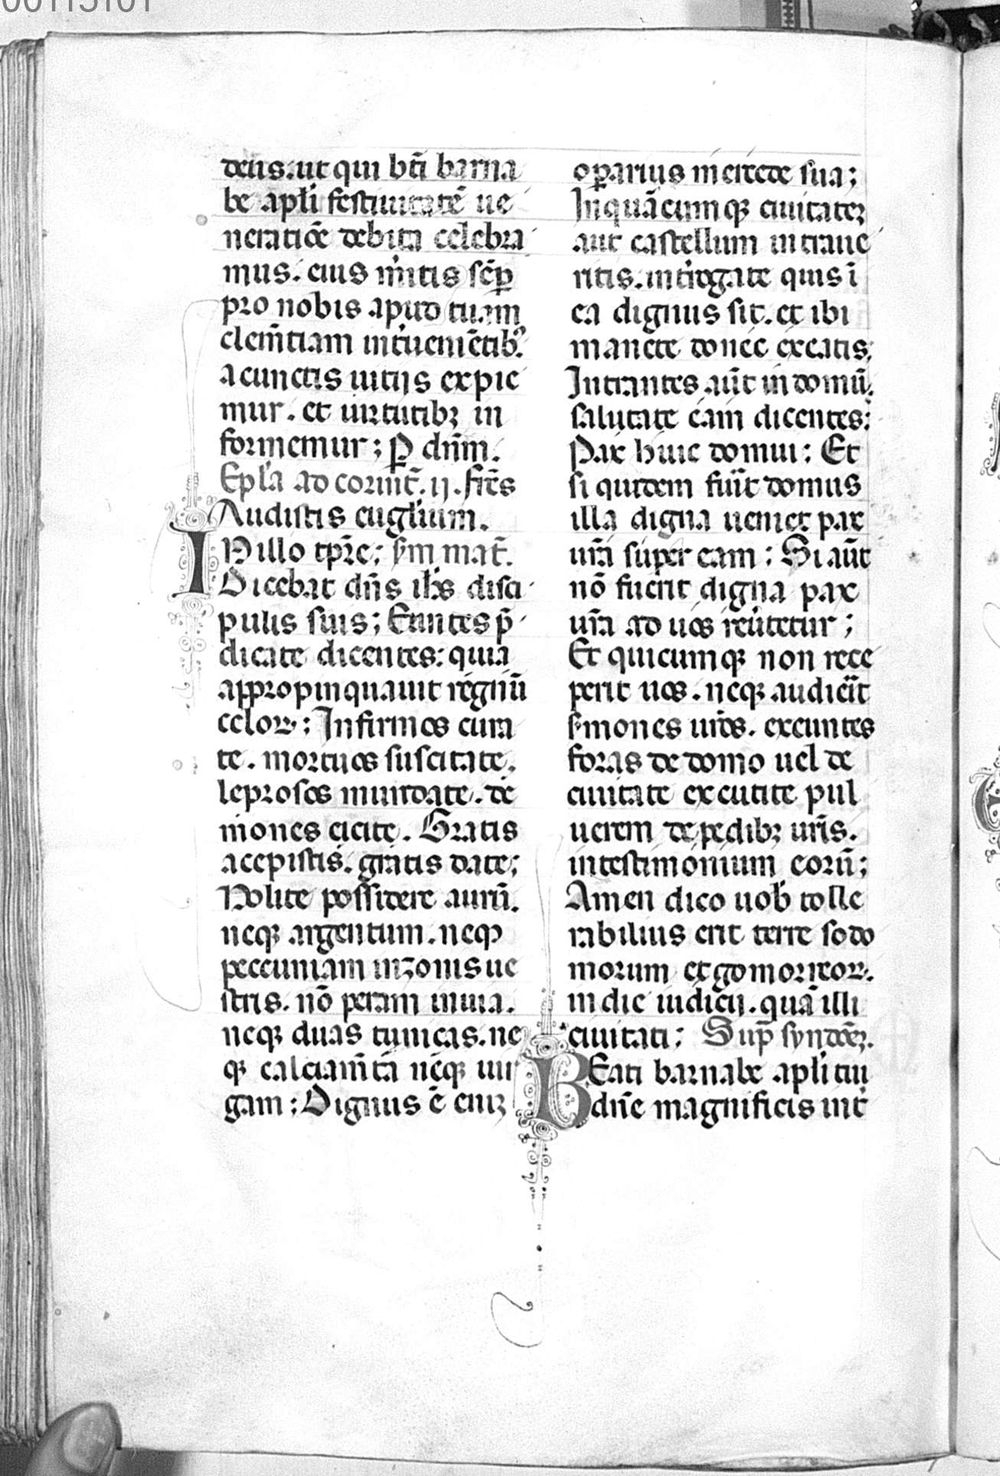 deus. ut qui bt̄i barna
be apl̄i festiuitatē ue
neratiōe debita celebra
mus. eius mītis sēꝑ
pro nobis apud tuam
clem̄tiam int̄uenīētib⁹
a cunctis uitijs expie
mur. et uirtutibꝫ in
formemur; P dn̄m.
Epl̄a ad corint̄. ij. fr̄es
Audistis eugl̄ium.
IN illo tp̄re; sm̄ mat̄.
Dicebat dn̄s ih̄s disci
pulis suis; Euntes p̄
dicate dicentes: quia
appropinquauit regnū
celoꝝ; Infirmos cura
te. mortuos suscitate.
leprosos mundate. de
mones eicite. Gratis
acepistis. gratis date;
Nolite possidere aurū.
neqꝫ argentum. neqꝫ
peccuniam in zonis ue
stris. nō peram in uia.
neqꝫ duas tunicas. ne
qꝫ calciam̄ta neqꝫ uir
gam; Dignus ē enīꝫ
oꝑarius mercede sua;
In quācumqꝫ ciuitateꝫ
aut castellum intraue
ritis. int̄rogate quis ī
ea dignus sit. et ibi
manete donec exeatis.
Intrantes aūt in domū.
salutate eam dicentes:
Pax huic domui: Et
si quidem fūit domus
illa digna ueniet pax
ur̄a super eam: Si aūt
nō fuerit digna pax
ur̄a ad uos reūtetur;
Et quicumqꝫ non rece
perit uos. neqꝫ audieīt
s̄mones ur̄os. exeuntes
foras de domo uel de
ciuitate excutite pul
uerem de pedibꝫ ur̄is.
in testimonium eorū;
Amen dico uob̄ tolle
rabilius erit terre sodo
morum et gomorreoꝝ.
in die iudicij. quā illi
ciuitati; Sup̄ syndoēꝫ.
BEati barnabe apl̄i tui
dn̄e magnificis int̄